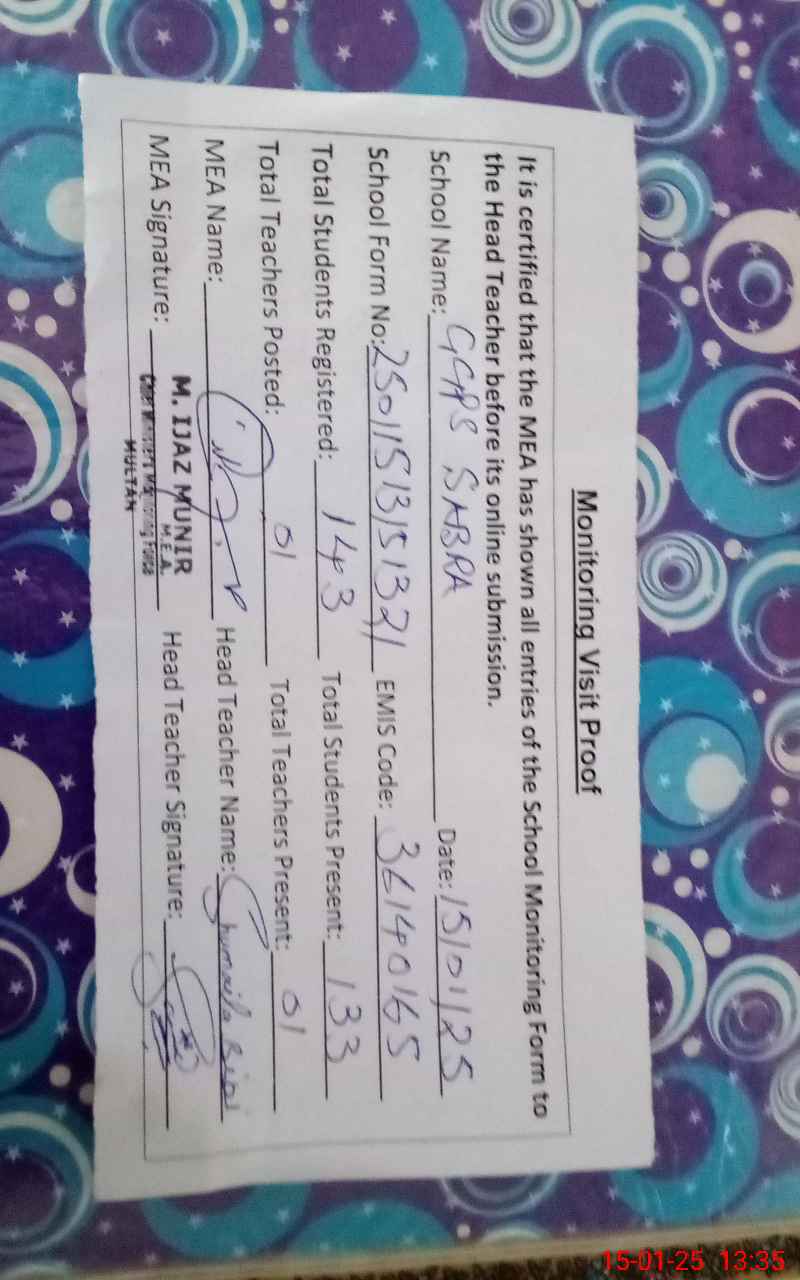 Monitoring Visit Proof
It is certified that the MEA has shown all entries of the School Monitoring Form to
the Head Teacher before its online submission.
School Name: GGPS SABRA Date: 15/01/25
School Form No: EMIS Code: 36140165
Total Students Registered: 143 Total Students Present: 133
Total Teachers Posted: 01 Total Teachers Present: 01
MEA Name: Head Teacher Name: Shumaila Bibi
M. IJAZ MUNIR
M.E.A.
MEA Signature: Chief Minister's Monitoring Force Head Teacher Signature:
MULTAN
15-01-25 13:35